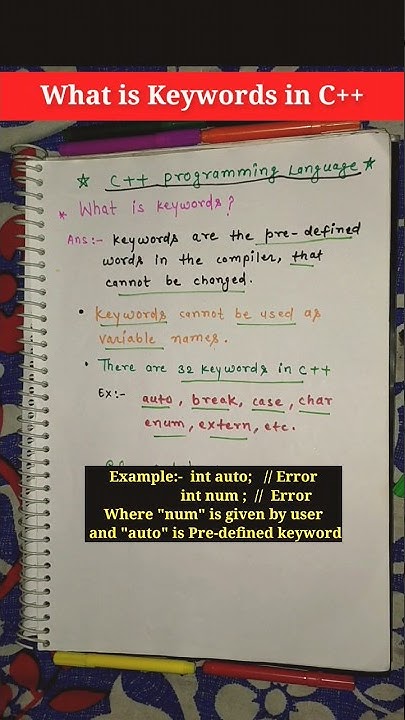 What is Keywords in C++
☆ C++ Programming Language ☆
* What is keywords?
Ans:- Keywords are the pre-defined
words in the compiler, that
cannot be changed.
• Keywords cannot be used as
variable names.
• There are 32 keywords in C++
Ex:- auto, break, case, char
enum, extern, etc.
Example:- int auto; // Error
int num ; // Error
Where "num" is given by user
and "auto" is Pre-defined keyword